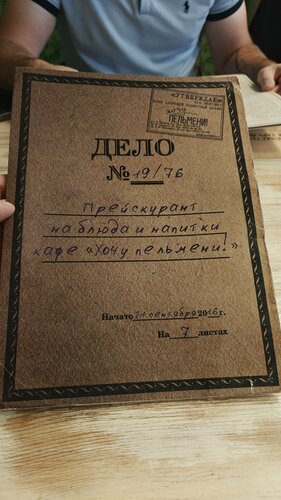 «УТВЕРЖДАЮ»
ПЕЛЬМЕНИ!
ДЕЛО
№ 19/76
Прейскурант
на блюда и напитки
кафе «Хочу пельмени!»
Начато 21 сентября 2016 г.
На 7 листах